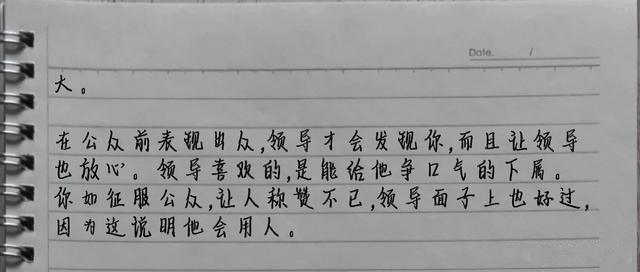 Date. /
大。
在公众前表现出众,领导才会发现你,而且让领导
也放心。领导喜欢的,是能给他争口气的下属。
你如征服公众,让人称赞不已,领导面子上也好过,
因为这说明他会用人。